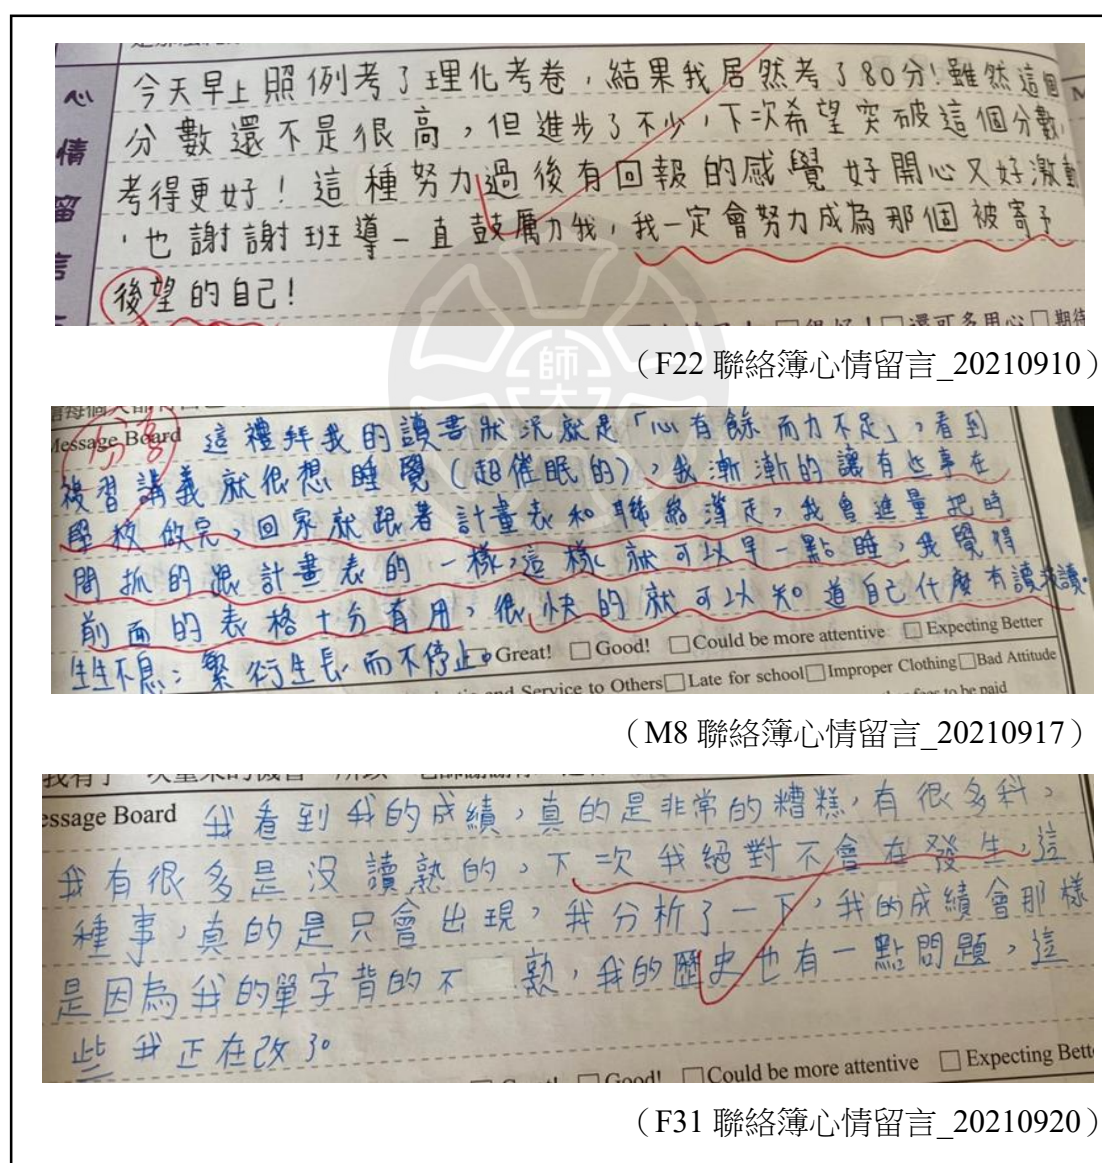 心情留言
今天早上照例考了理化考卷，結果我居然考了80分!雖然這個
分數還不是很高，但進步了不少，下次希望突破這個分數，
考得更好！這種努力過後有回報的感覺好開心又好激動
，也謝謝班導一直鼓厲力我，我一定會努力成為那個被寄予
後望的自己!
還可多用心□期待
（F22 聯絡簿心情留言_20210910）
Message Board 這禮拜我的讀書狀況就是「心有餘而力不足」，看到
複習講義就很想睡覺(超催眠的)，我漸漸的讓有些事在
學校做完，回家就跟著計畫表和聯絡簿走，我會進量把時
間抓的跟計畫表的一樣，這樣就可以早一點睡，我覺得
前面的表格十分有用，很快的就可以知道自己什麼有讀沒讀。
生生不息：繁衍生長而不停止。 Great! □Good! □Could be more attentive □Expecting Better
and Service to Others□Late for school□Improper Clothing□Bad Attitude
to be paid
（M8 聯絡簿心情留言_20210917）
essage Board 我看到我的成績，真的是非常的糟糕，有很多科，
我有很多是沒讀熟的，下一次我絕對不會在發生，這
種事，真的是只會出現，我分析了一下，我的成績會那樣
是因為我的單字背的不 熟，我的歷史也有一點問題，這
些我正在改了。
Good! □Could be more attentive □Expecting Bett
（F31 聯絡簿心情留言_20210920）
師大